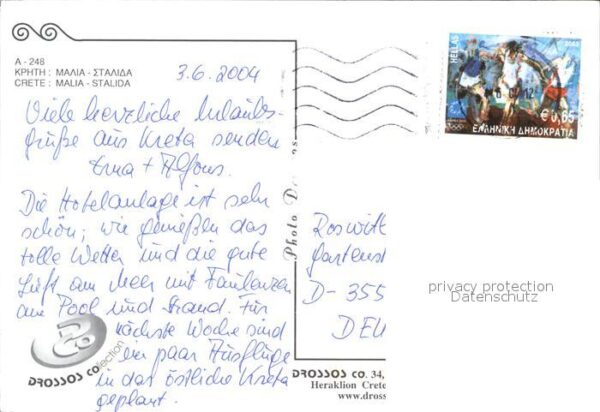 A - 248
ΚΡΗΤΗ : ΜΑΛΙΑ - ΣΤΑΛΙΔΑ
CRETE : MALIA - STALIDA
3.6.2004
Viele herzliche Urlaubs-
grüße aus Kreta senden
Erna + Alfons.
Die Hotelanlage ist sehr
schön; wir genießen das
tolle Wetter und die gute
Luft am Meer mit Faulenzen
am Pool und Strand. Für
nächste Woche sind
ein paar Ausflüge
in das östliche Kreta
geplant.
DROSSOS Collection
Photo D
HELLAS
€ 0,65
ΕΛΛΗΝΙΚΗ ΔΗΜΟΚΡΑΤΙΑ
Roswit
Gartenst
D- 355
DEU
privacy protection
Datenschutz
DROSSOS CO. 34,
Heraklion Crete
www.dross